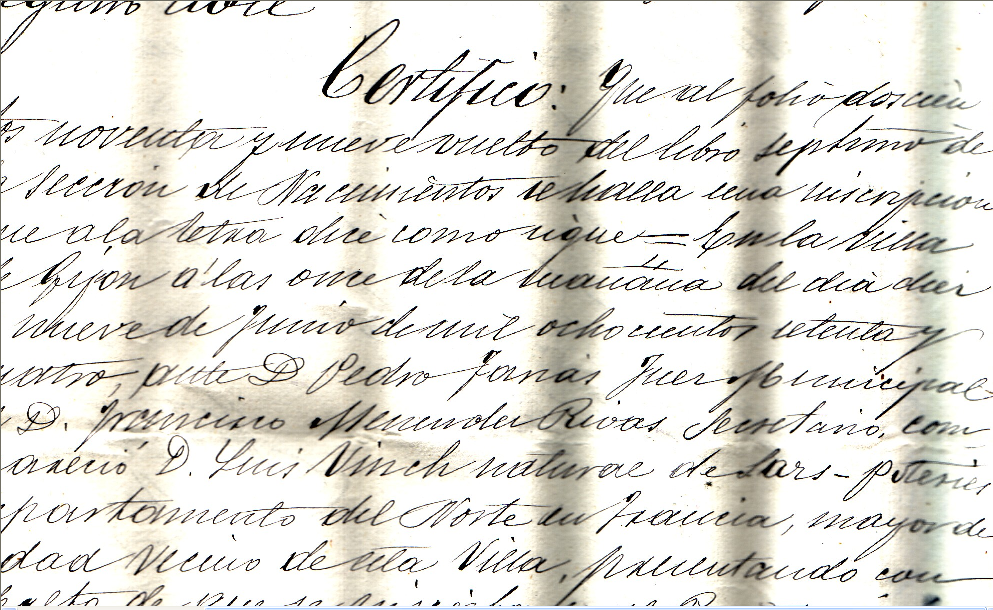 Certifico: Que al folio doscien
tos noventa y nueve vuelto del libro septimo de
Sección de Nacimientos se halla una inscripción
ue a la letra dice como sigue = En la Villa
Gijón á las once de la mañana del dia diez
nueve de Junio de mil ochocientos setenta y
uatro, ante D Pedro Farias Juez Municipal
D. Francisco Menendez Rivas Secretario, com
areció D. Luis Vinch natural de Sars-poteries
partamento del Norte en Francia, mayor de
dad Vecino de esta Villa, presentando con
de que se